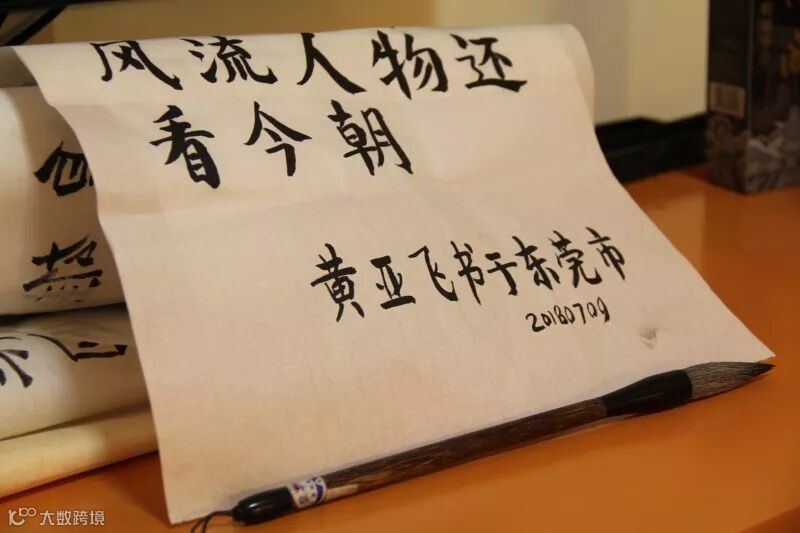 风流人物还
看今朝
黄亚飞书于东莞市
20180709
大数跨境